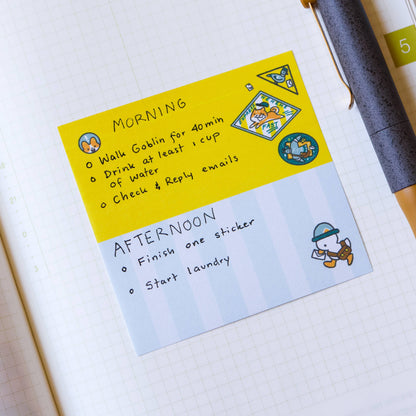 MORNING
Walk Goblin for 40 min
Drink at least 1 cup
of water
Check & Reply emails
AFTERNOON
Finish one sticker
Start laundry
FAST
5